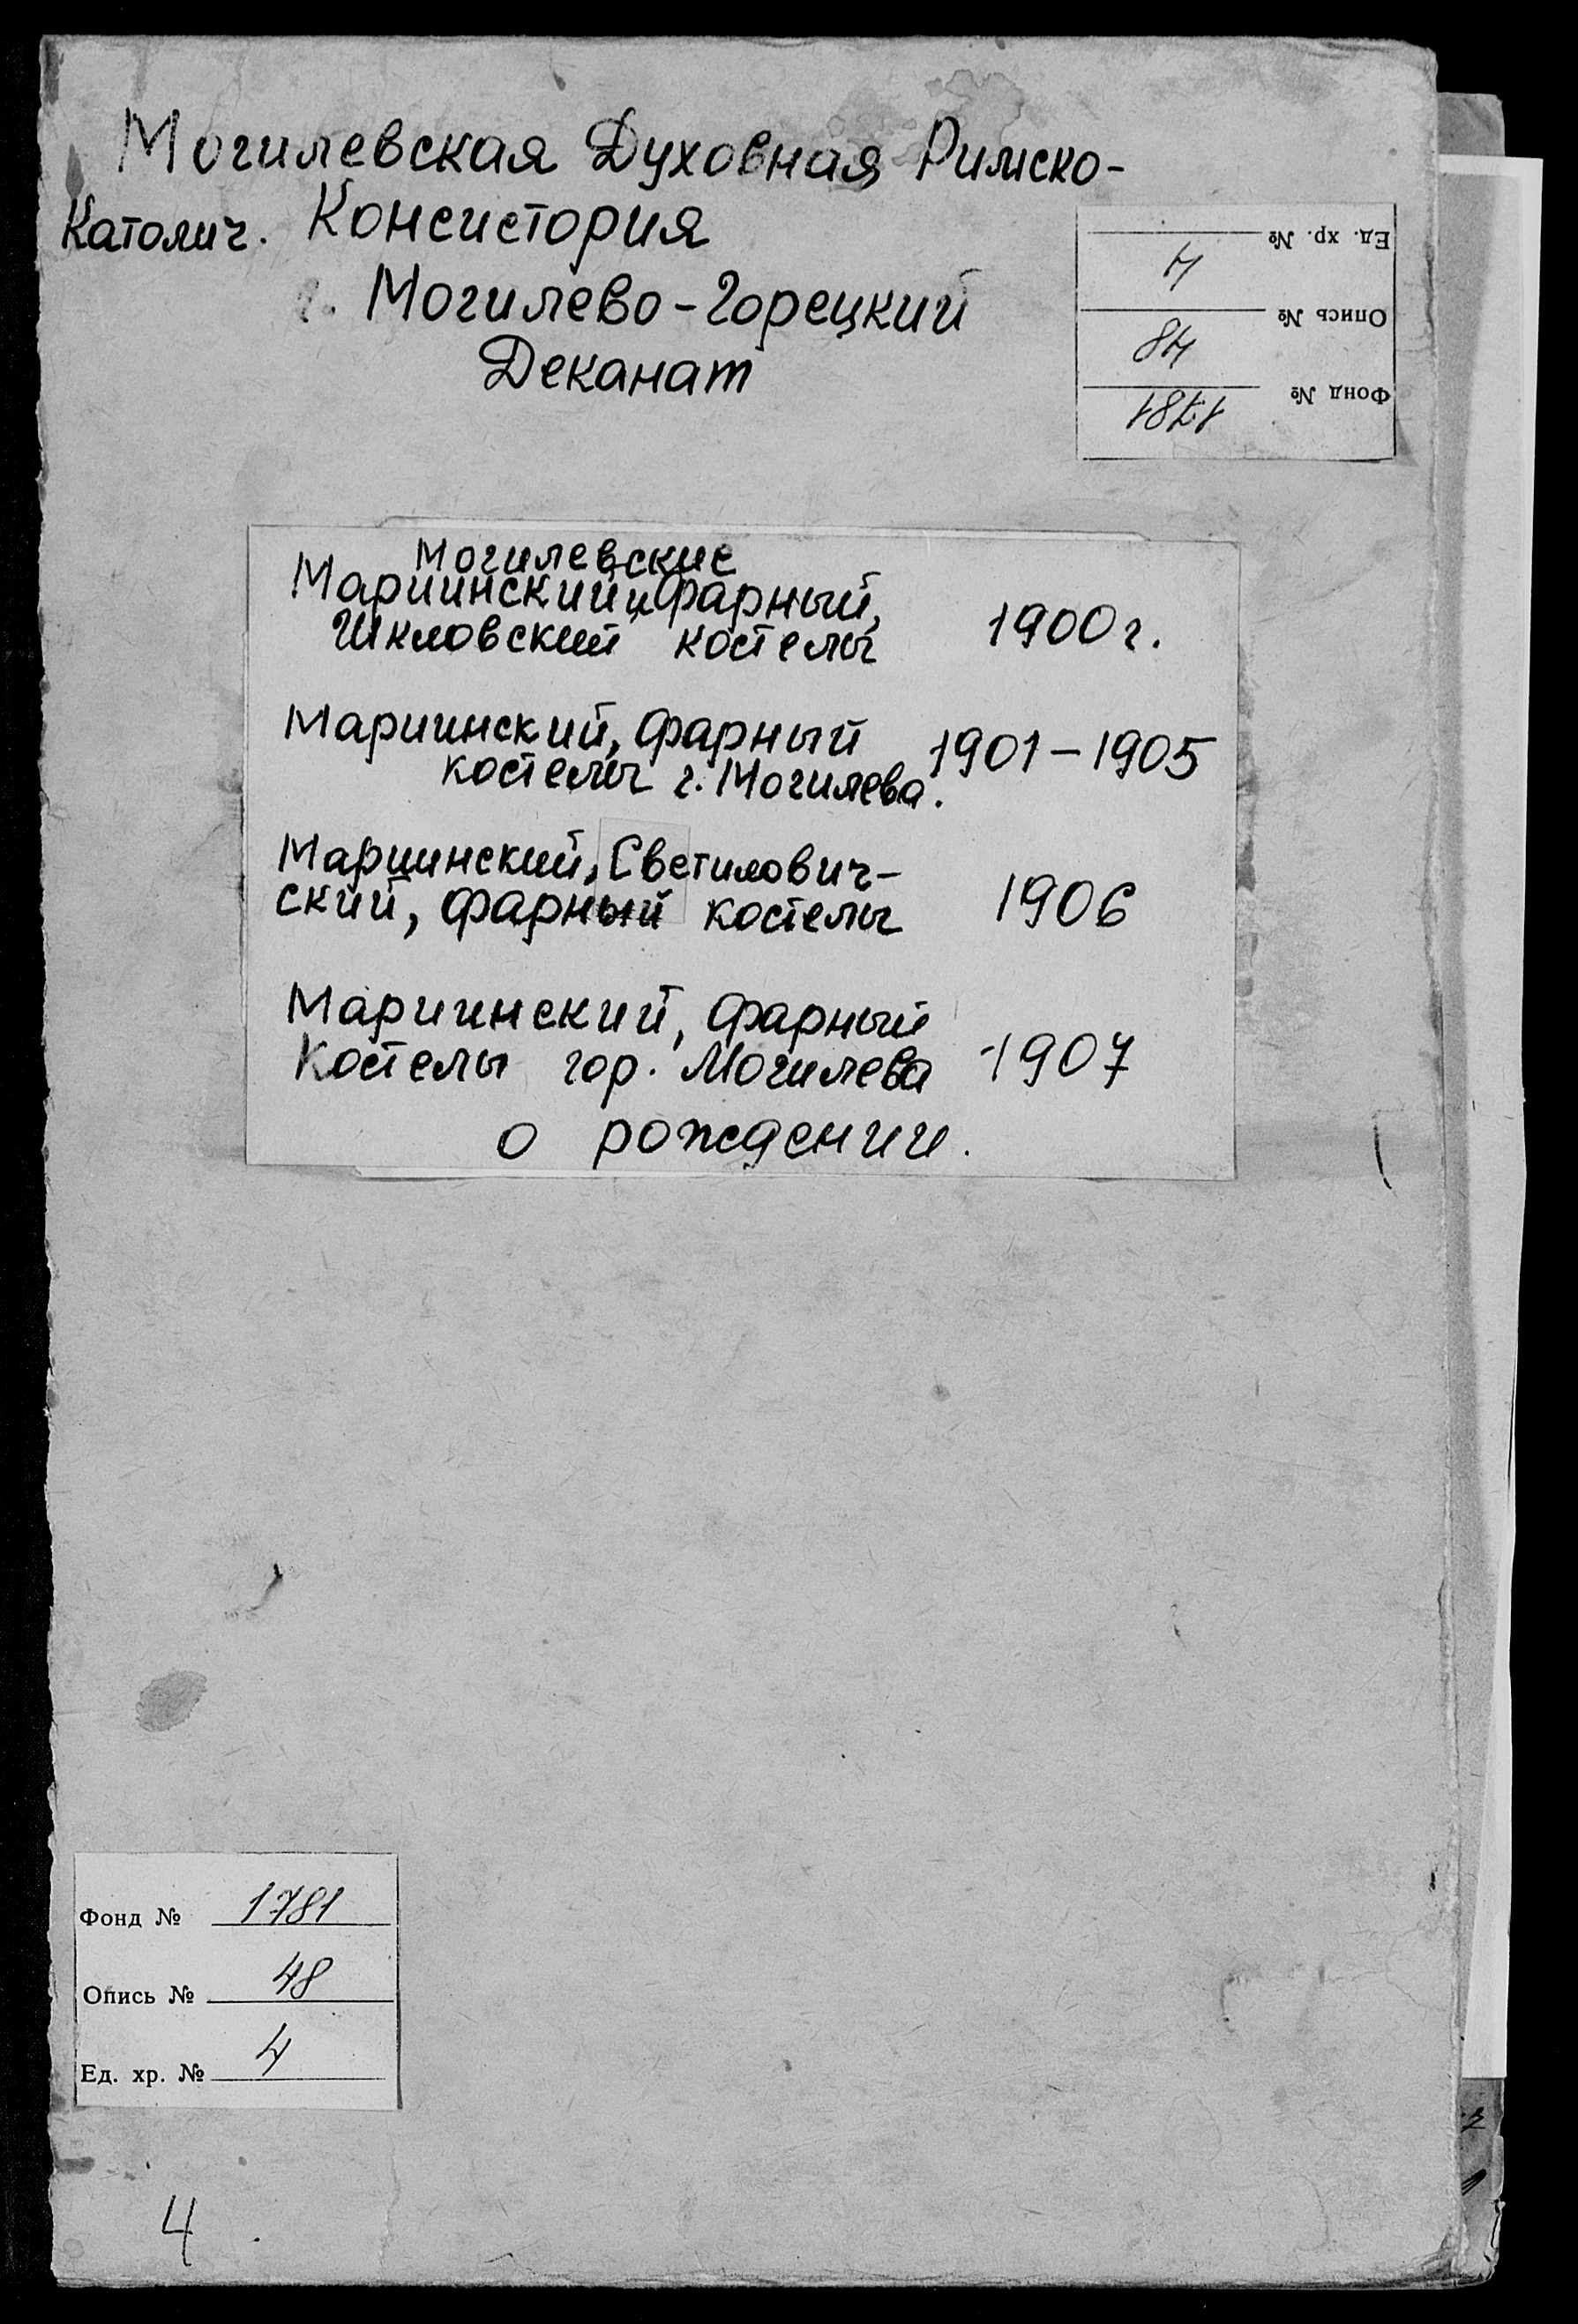 Могилевская Духовная Римско-
Католич. Консистория
г. Могилево-Горецкий
Деканат
Ед. хр. № 4
Опись № 48
Фонд № 1781
Могилевские
Мариинский и фарный,
Шкловский костелы 1900 г.
Мариинский, фарный 1901-1905
костелы г. Могилева.
Мариинский, Светилович-
ский, фарный костелы 1906
Мариинский, фарный
Костелы гор. Могилева 1907
о рождении.
Фонд № 1781
Опись № 48
Ед. хр. № 4
4